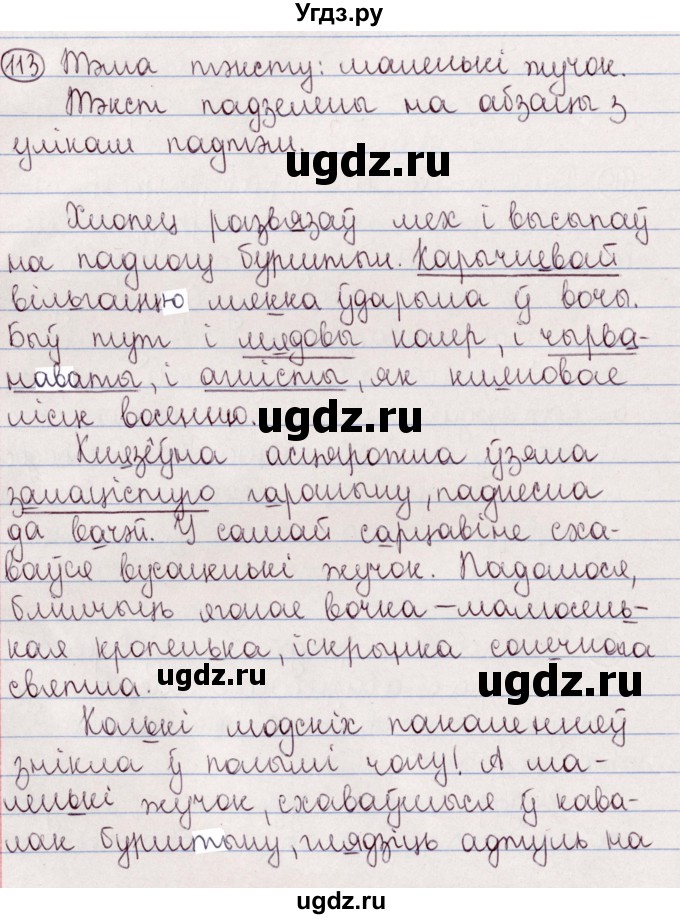 Угдз.ру
113 Тэма тэксту: маленькі жучок.
Тэкст падзелены на абзацы з
улікам падтэм.
ugdz.ru
Хлопец развязаў мех і высыпаў
на падлогу бурштын. Карычневай
вільгаццю мякка ўдарыла ў вочы.
Быў тут і мядовы колер, і чырва-
наваты, і агністы, як кляновае
лісце восенню.
ugdz.ru
Князёўна асцярожна ўзяла
залацістую гарошыну, паднесла
да вачэй. У самай сарцавіне сха-
ваўся вусаценькі жучок. Падалося,
блішчыць ягонае вочка – малюсень-
кая кропелька, іскрынка сонечнага
святла.
ugdz.ru
ugdz.ru
Колькі людскіх пакаленняў
знікла ў полымі часу! А ма-
ленькі жучок, схаваўшыся ў кава-
лак бурштыну, глядзіць адтуль на
ugdz.ru